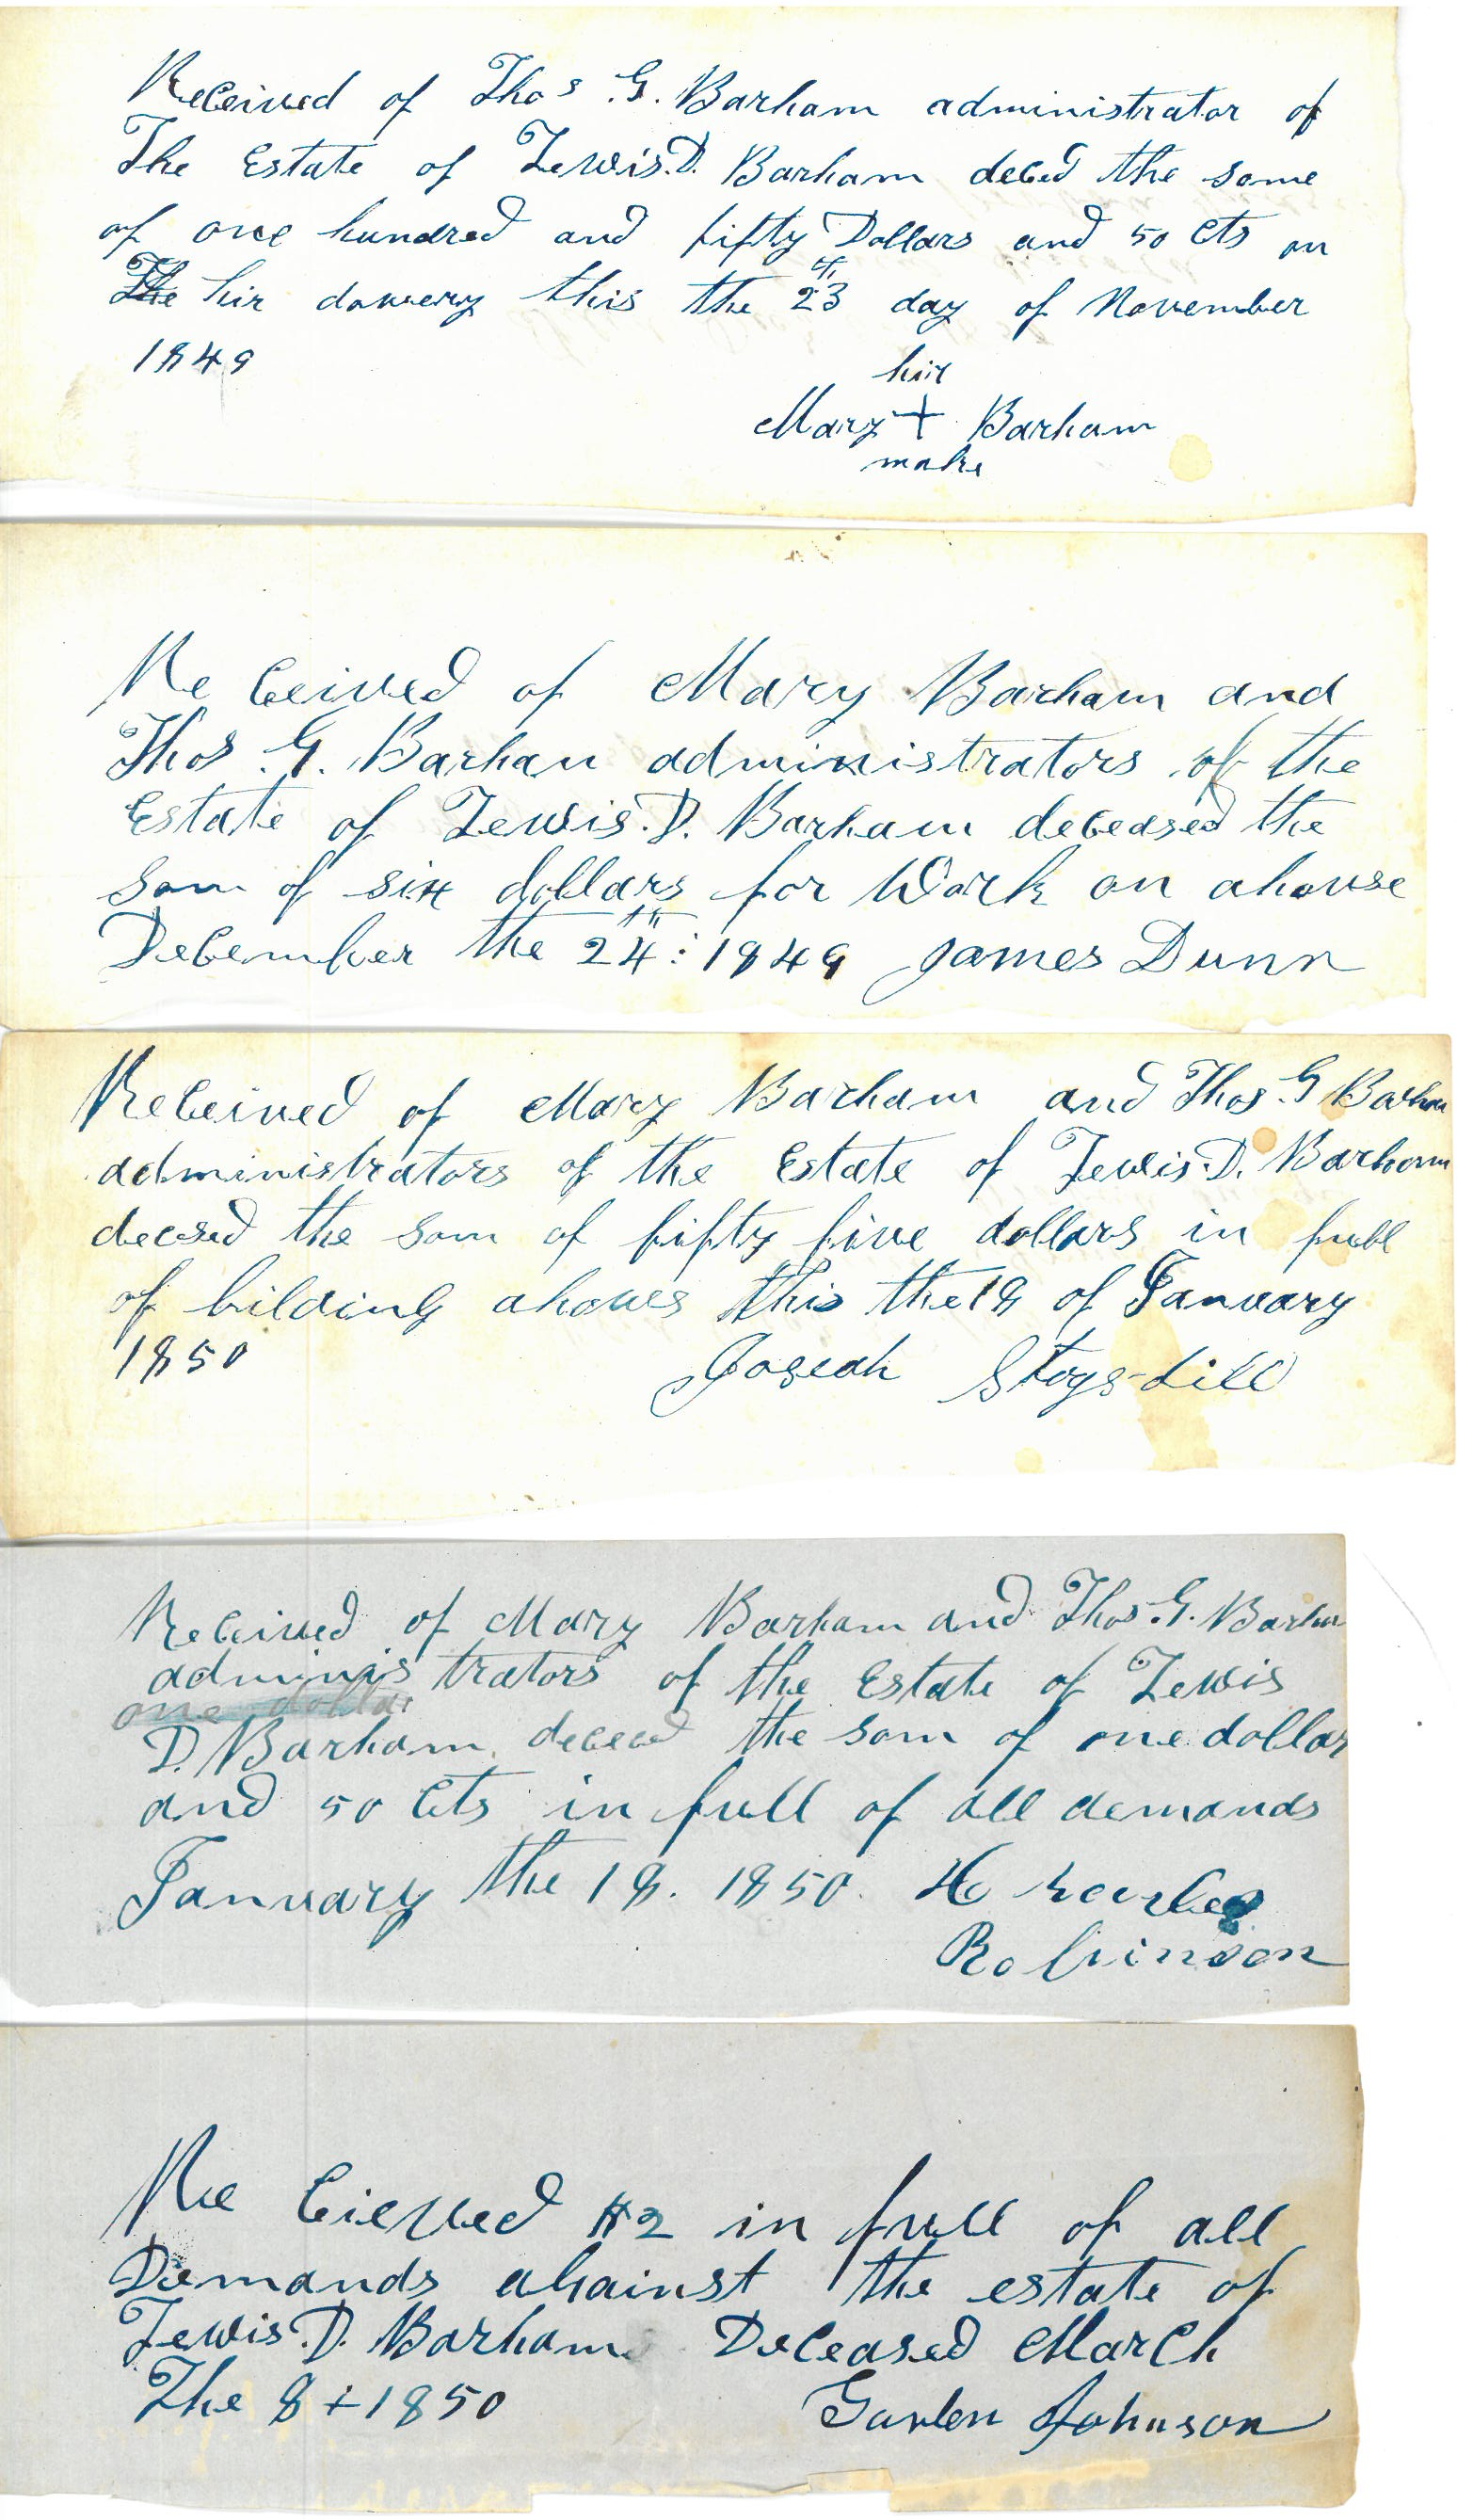 Received of Thos G. Barham administrator of
The Estate of Lewis. D. Barham deced the some
of one hundred and fifty Dollars and 50 cts on
The hir dowery this the 23th day of November
1849
hir
Mary + Barham
make
Re ceived of Mary Barham and
Thos G. Barhan administrators of the
Estate of Lewis. D. Barham deceased the
som of six dollars for Work on ahouse
December the 24th: 1849 James Dunn
Received of Mary Barham and Thos G Barham
administrators of the Estate of Lewis. D. Barham
decesed the som of fifty five dollars in full
of bilding ahoues this the 18 of January
1850
Joseah Stogs-dill
Received of Mary Barham and Thos. G. Barham
adminis trators of the Estate of Lewis
one dollar
D. Barham deceed the som of one dollar
and 50 cts in full of all demands
January the 18. 1850.
Robinson
Re cieved $2 in full of all
Demands against the estate of
Lewis. D. Barham Deceased March
The 8 + 1850 Garlen Johnson